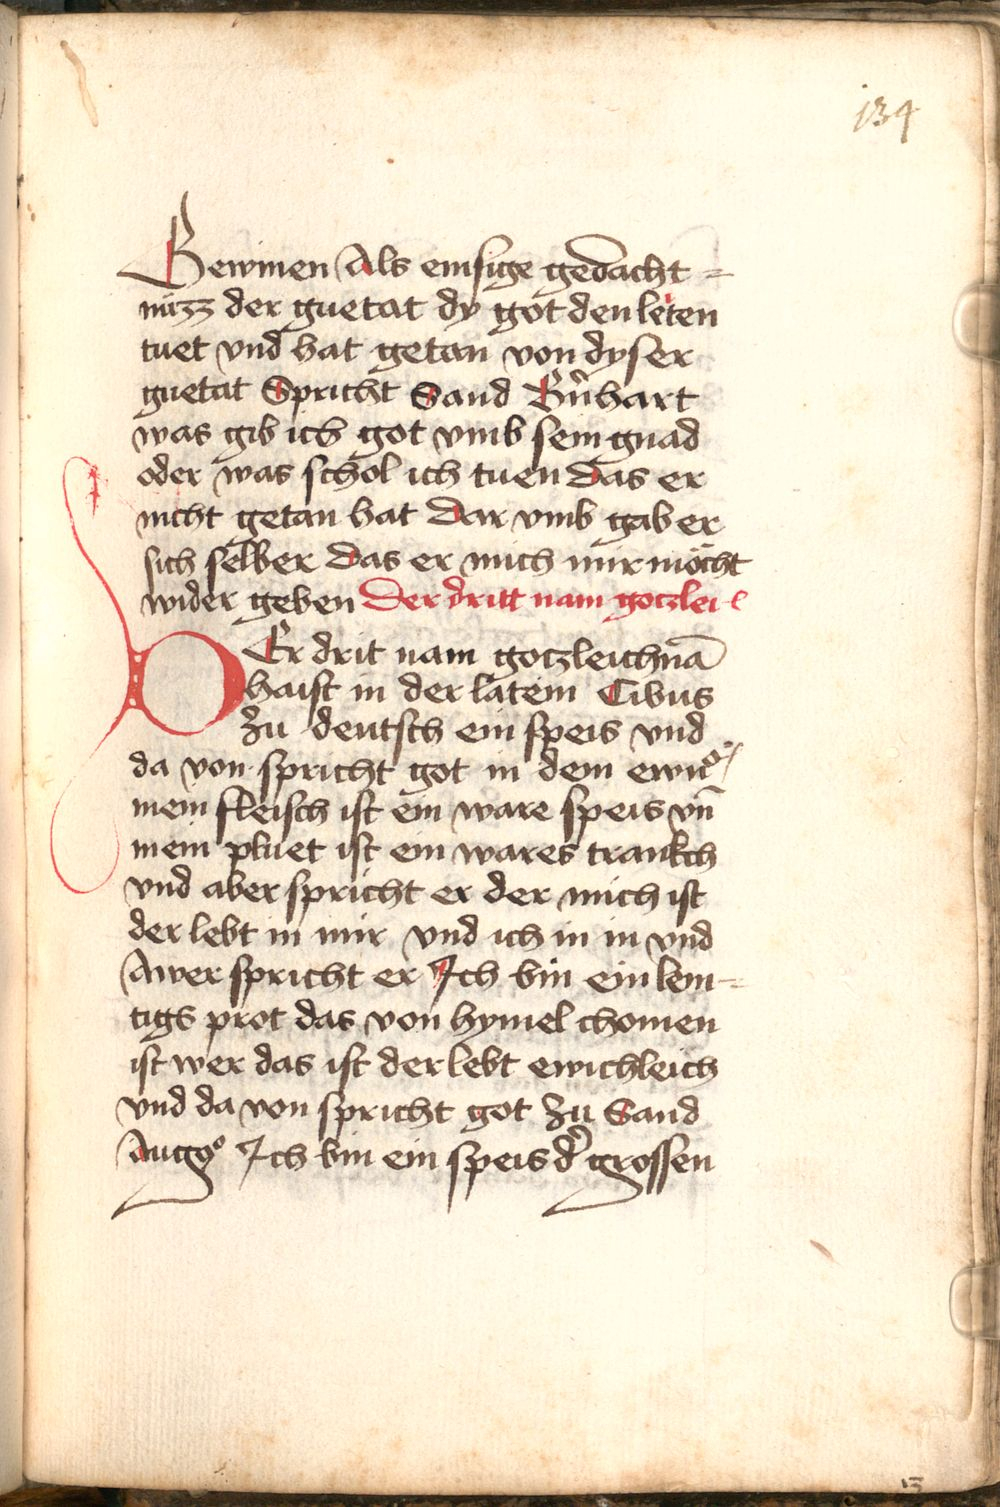 134
Gewinen Als emsige gedacht=
nüzz der guetat dy got den leẃten
tuet vnd hat getan von dyser
guetat Spricht Sand Bn̄hart
was gib ich got vmb sein gnad
oder was schol ich tuen das er
nicht getan hat Dar vmb gab er
sich selber Das er mich mir möcht
wider geben Der dritt nam goczlei-c
DEr drit nam goczleichnā
haist in der latein Cibus
Zu deutsch ein speis vnd
da von spricht got in dem
mein fleisch ist ein ware speis vn̄
mein pluet ist ein wares trankch
vnd aber spricht er der mich ist
der lebt in mir vnd ich in in vnd
Awer spricht er Ich bin ein lem=
tigs prot das von hymel chomen
ist wer das ist der lebt ewichleich
vnd da von spricht got Zu Sand
Augꝰ Ich bin ein speis d' grossen